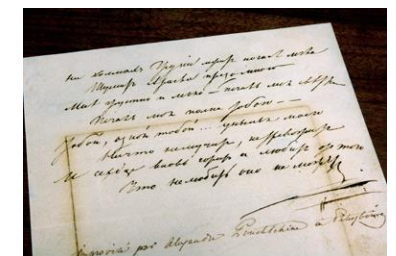 на холмахъ Грузіи лежитъ ночная мгла
Шумитъ Арагва предо мною
Мнѣ грустно и легко — печаль моя свѣтла
Печаль моя полна тобою —
Тобой, одной тобой... унынья моего
Ничто не мучитъ, не тревожитъ
И сердце вновь горитъ и любитъ отъ того
Что не любить оно не можетъ
par Alexandre